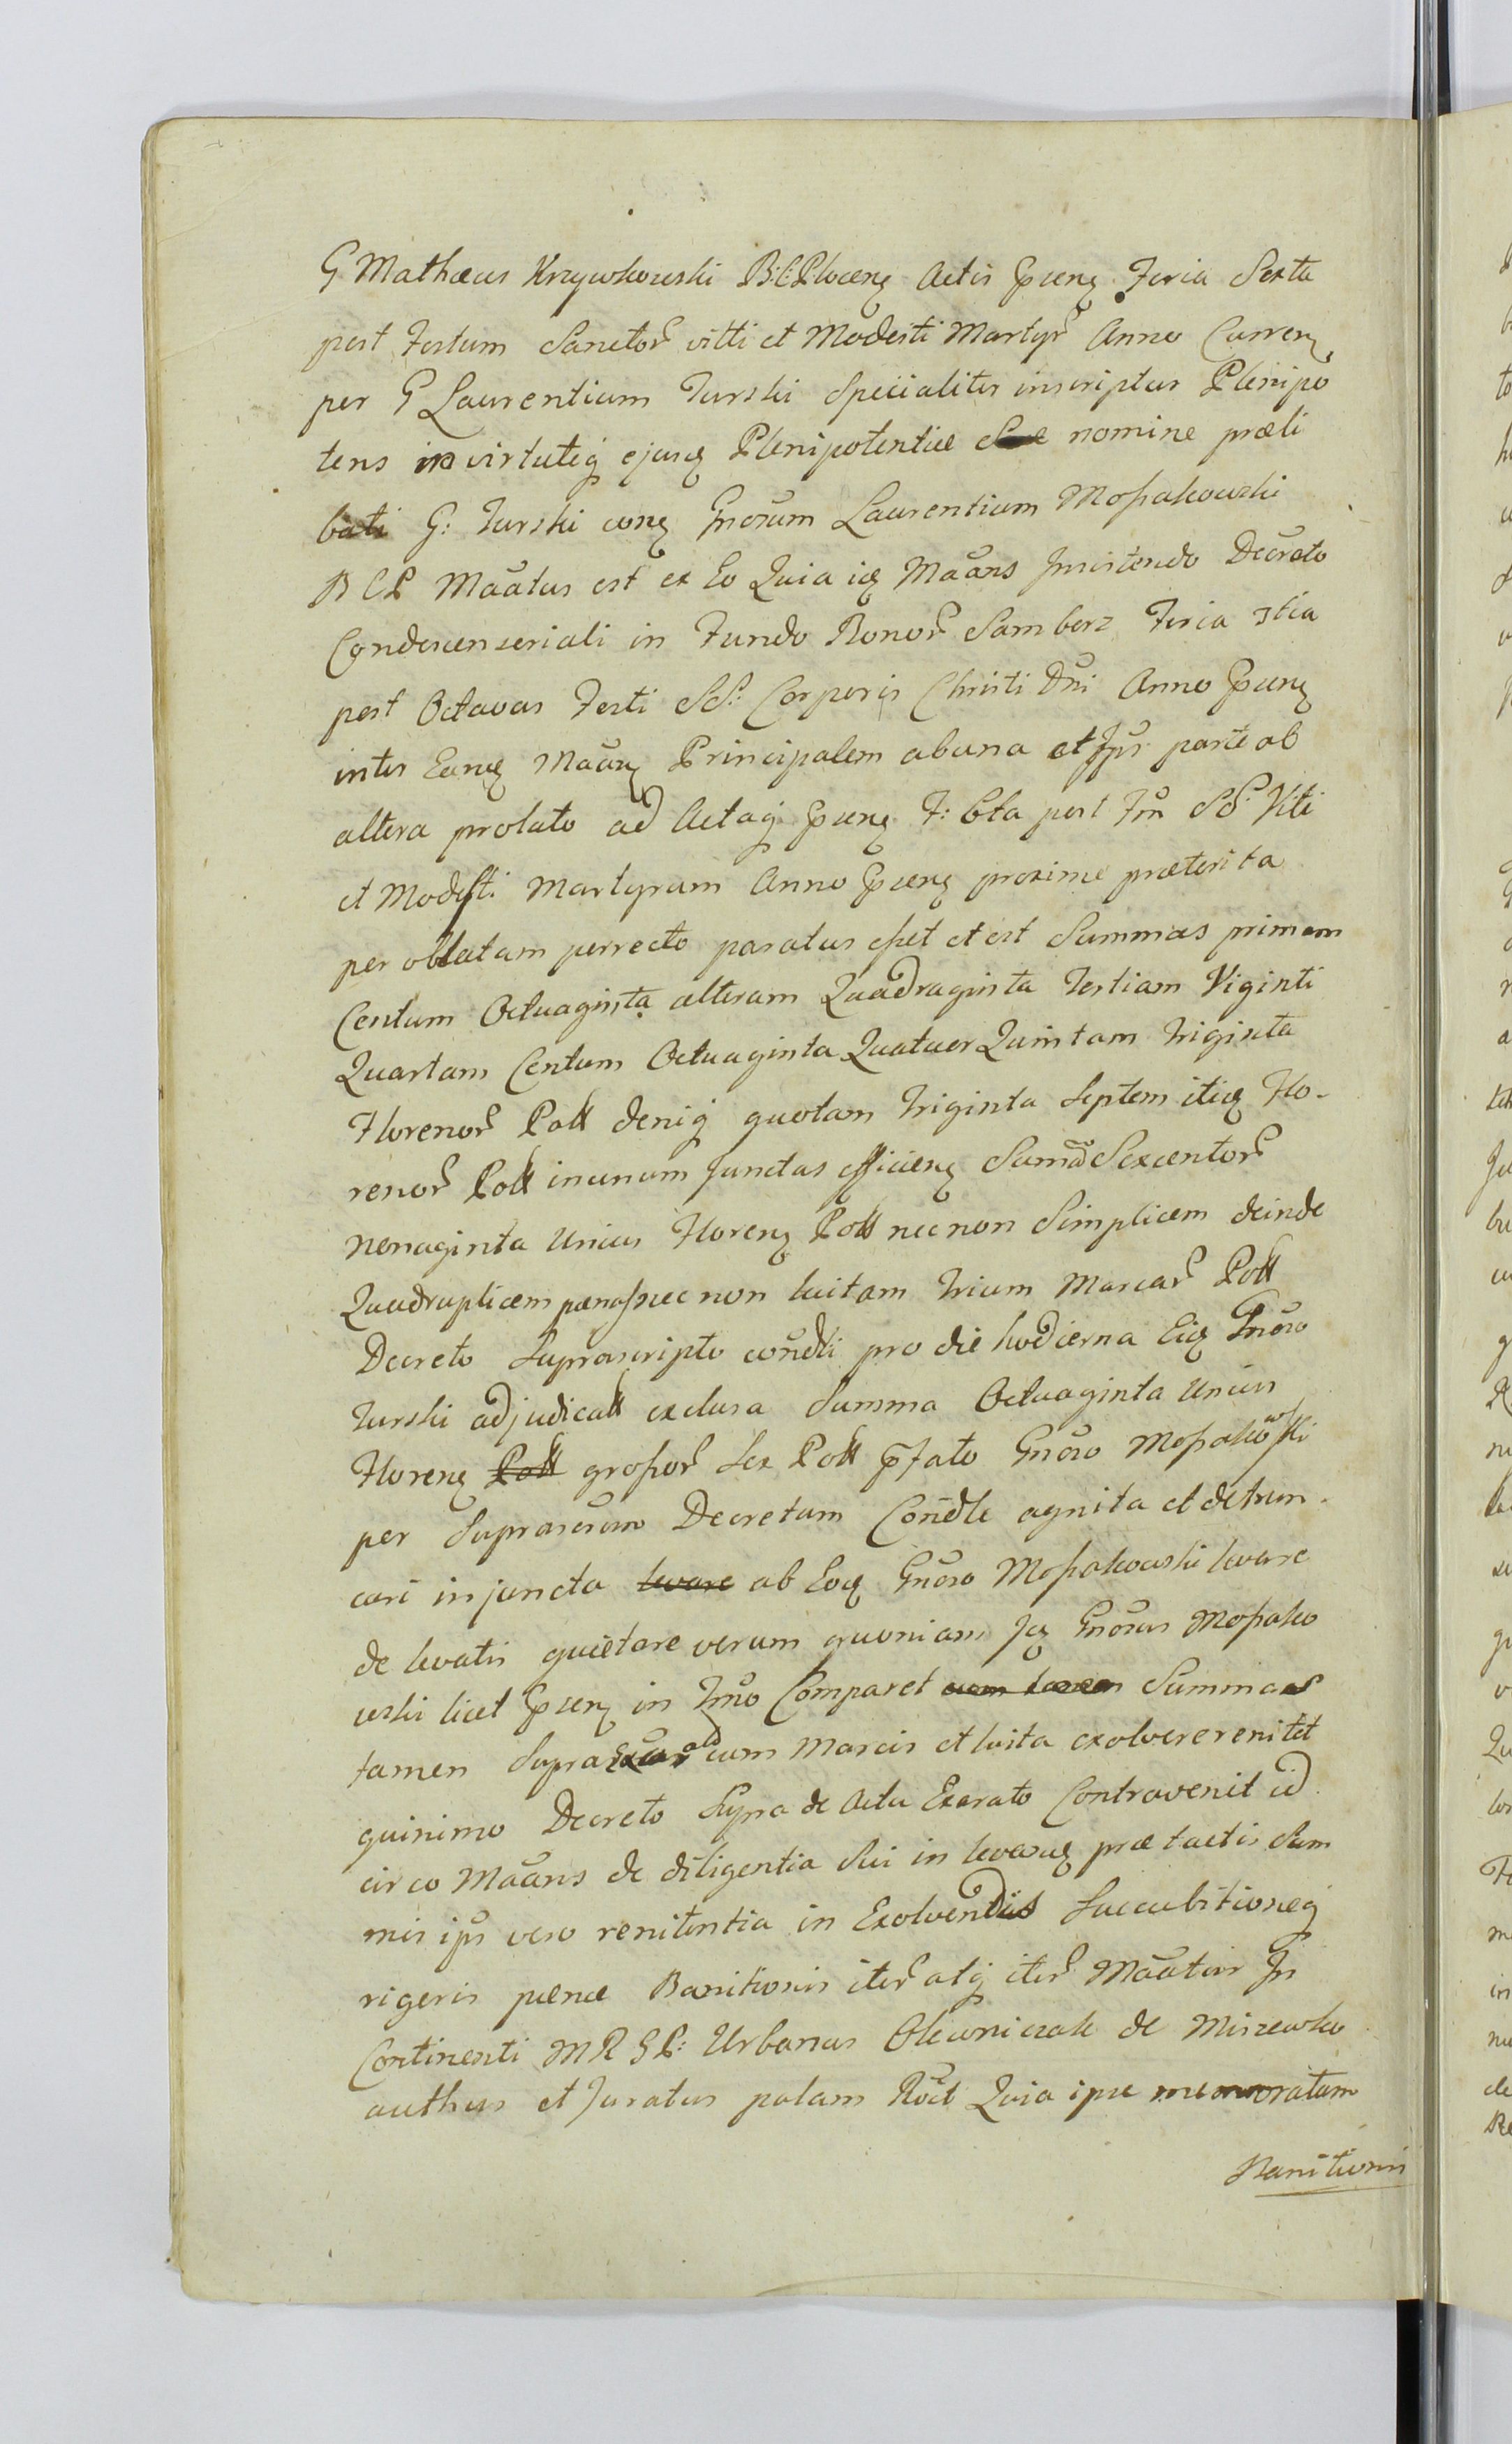 G Mathæus Krzywkowski B:C:P:loceng Actis Pp̄sens Feria Sexta
post Festum Sanctor̄ Vitti et Modesti Martyr̄ Anno Curren̄
per G Laurentium Turski Specialiter inscriptus Plenipo
tens in virtuteq̨ ejusq̨ Plenipotentiæ nomine præli
bati G: Turski conq̨ Gnōsum Laurentium Mossakowski
B C P Maātus est ex Eo Quia iq̨ Maāns Insistendo Decreto
Condescenseriali in Fundo Bonor̄ Samborz Feria 3tia
post Octavas Festi SS: Corporis Christi Dn̄i Anno Pp̄senq̨
inter Eunq̨ Maān̨ Principalem ab una et Ip̄s parte ab
altera prolato ad Actaq̨ Pp̄senq̨ F: 6ta post Fm̄ SS: Viti
et Modesti Martyrum Anno Pp̄senq̨ proxime præterita
per oblatam perrecto paratus esset et est Summas primam
Centum Octuaginta alteram Quadraginta Tertiam Viginti
Quartam Centum Octuaginta Quatuor Quintam Triginta
Florenor̄ Poll deniq̨ quotam Triginta Septem itiq̨ Flo-
renor̄ Poll in unum Junctas efficienq̨ Sumā Sexcentor̄
Nonaginta Unius Florenq̨ Poll nec non Simplicem deinde
Quadruplicem pænas nec non luitam Trium Marcar̄ Poll
Decreto Suprascripto con̄dli pro die hodierna Eiq̨ Gnōso
Turski adjudicatt exclusa Summa Octuaginta Unius
Florenq̨ Poll grossor̄ Sex Poll p̄fato Gnōso Mossakowski
per Suprascrum Decretum Con̄dle agnita et detrun-
cari injuncta levare ab Eoq̨ Gnōso Mossakowski levare
de levatis quietare verum quoniam Iq̨ Gnōsus Mossako
wski licet Pp̄senq̨ in Tm̄o Comparet cum tamen Summas
tamen Supra cum Marcis et luita exolvere renitet
quinimo Decreto Supra de Actu Exarato Contravenit id
circo Maāns de diligentia Sui in levanq̨ prætactis Sum
mis ip̄s vero renitentia in Exolvendis Succubitioneq̨
rigeris pænæ Banitionis iter̄ atq̨ iter̄ Maātur In
Continenti M R G L: Urbanus Olewniczak de Miszewko
authus et Juratus palam Roct Quia ipse memoratam
Banitionis